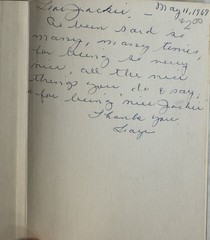 Dear Jackie, — May 11, 1969
As been said so
many, many times,
for being so very
nice, all the nice
things you do & say,
for being nice Jackie
Thank you
Faye